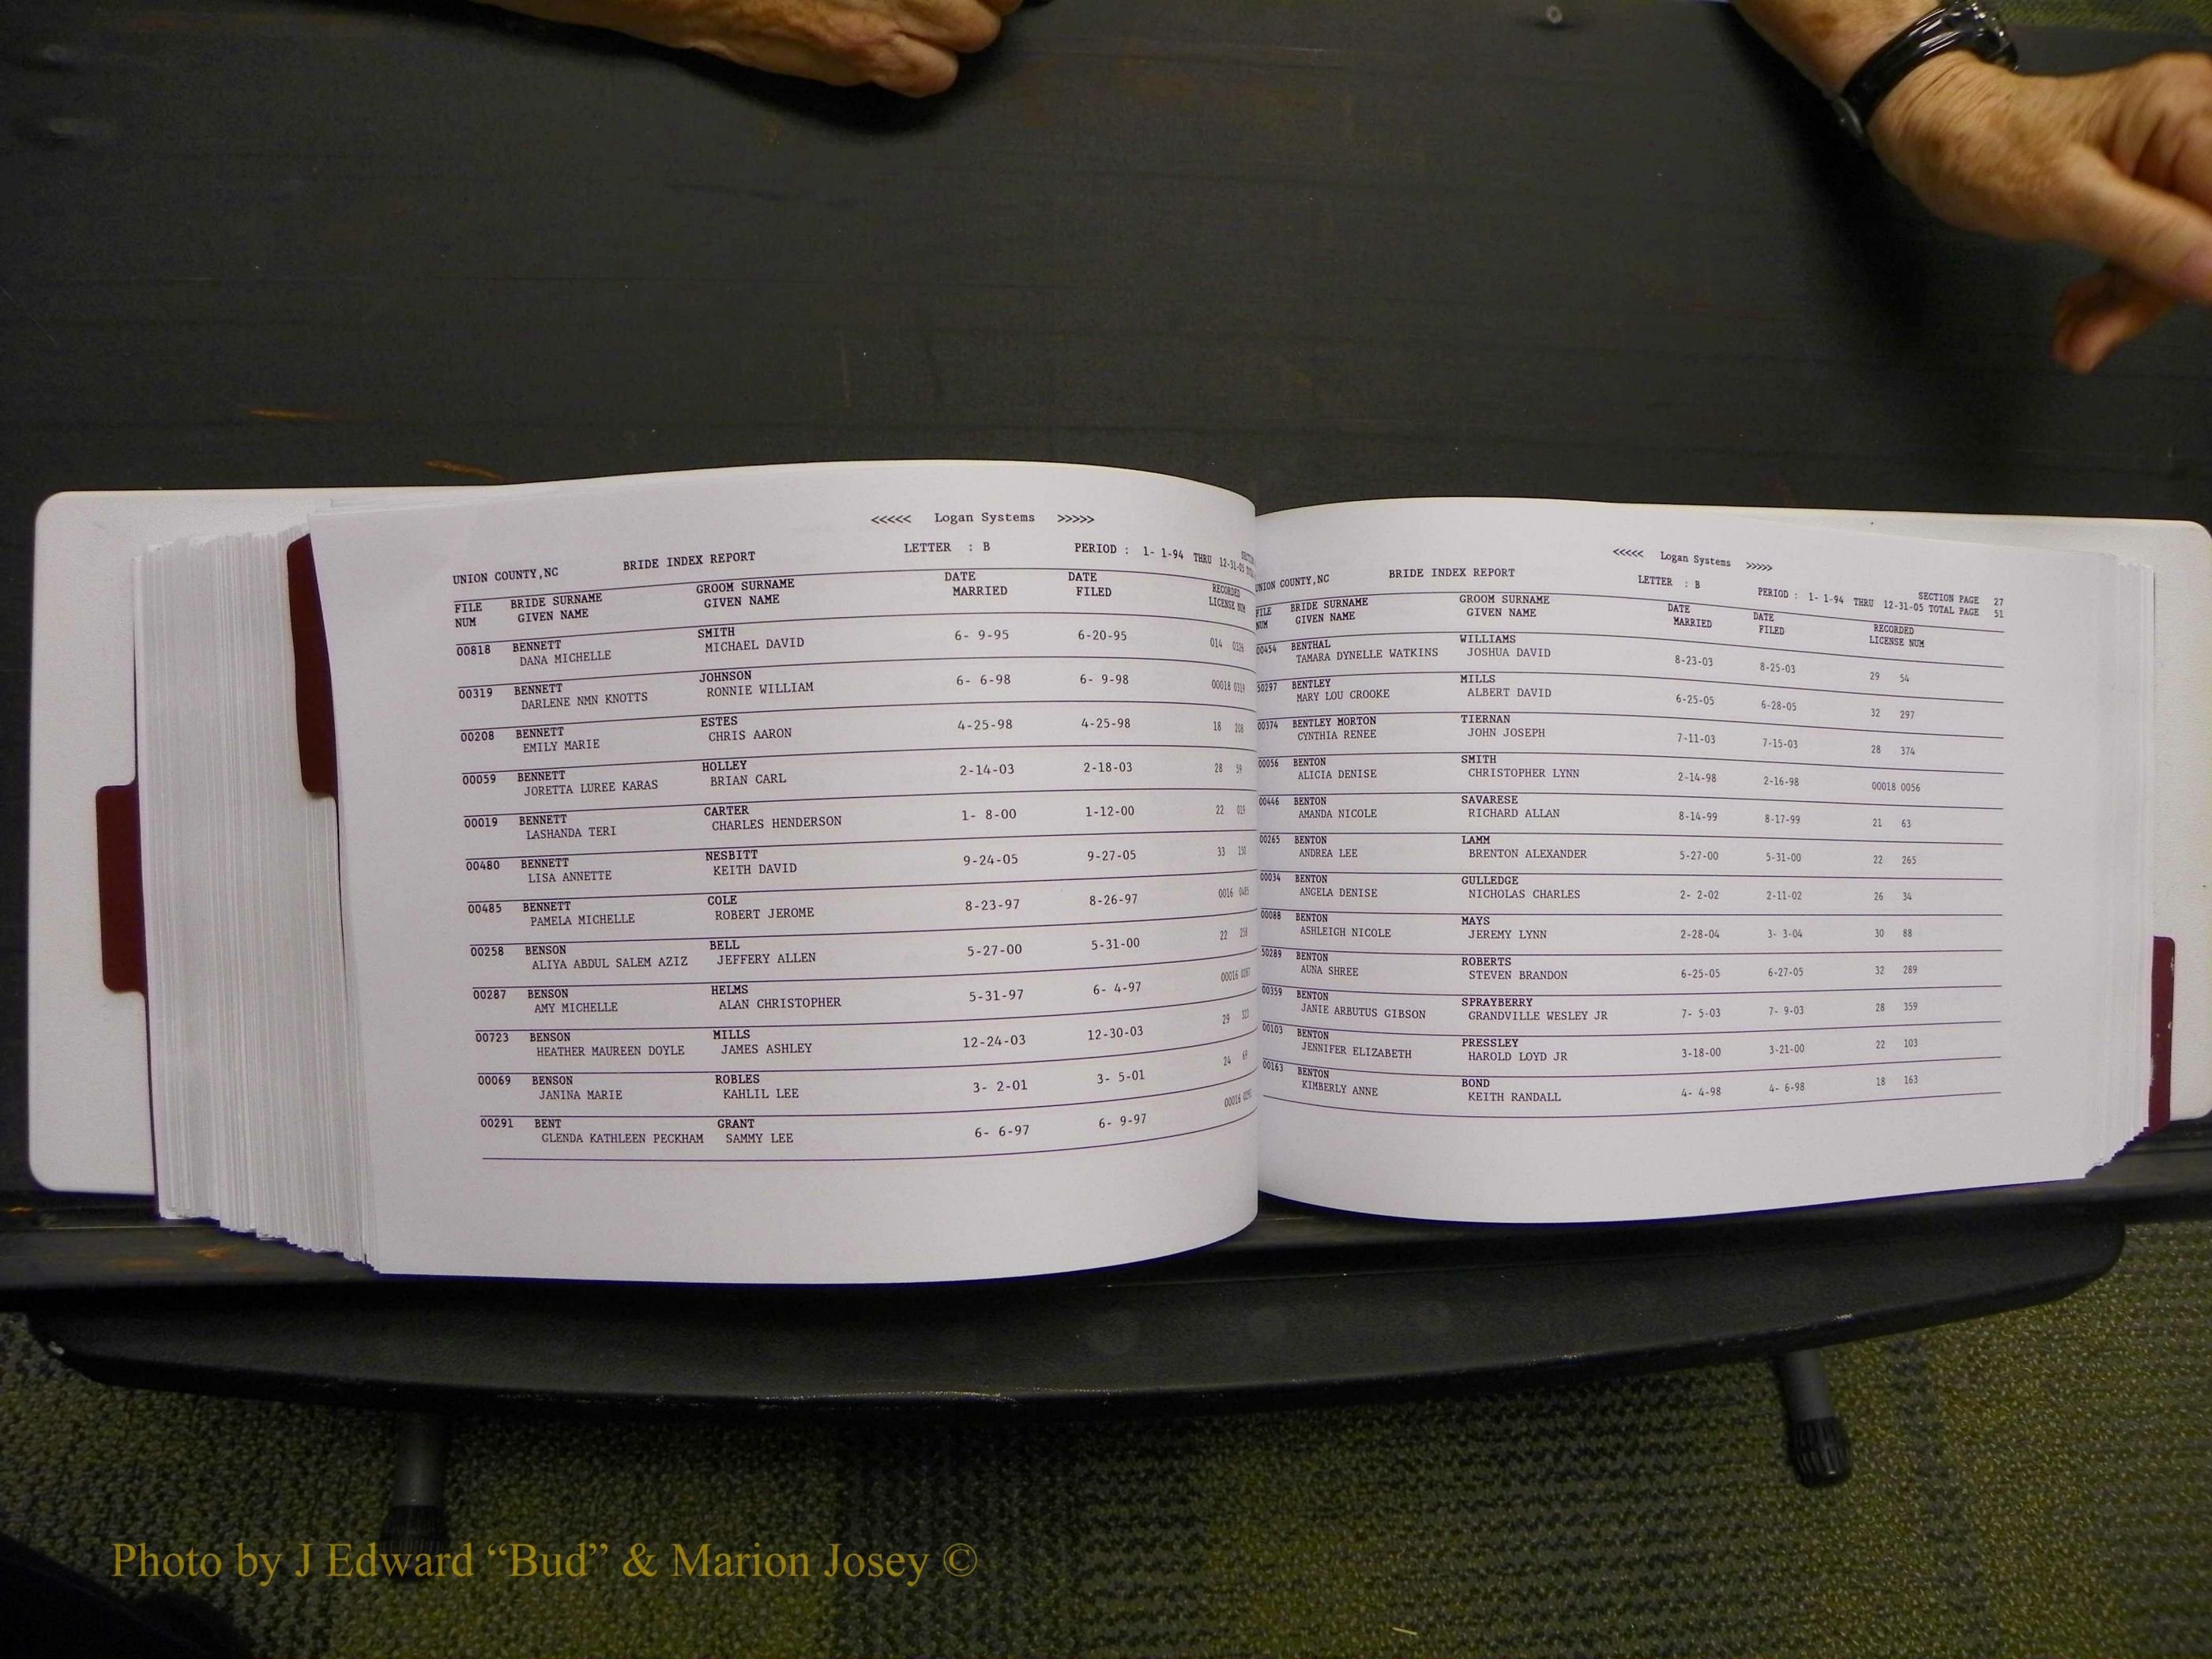 <<<<< Logan Systems >>>>>
UNION COUNTY,NC BRIDE INDEX REPORT LETTER : B PERIOD : 1- 1-94 THRU 12-31-05
FILE BRIDE SURNAME GROOM SURNAME DATE DATE RECORDED
NUM GIVEN NAME GIVEN NAME MARRIED FILED LICENSE NUM
00818 BENNETT SMITH 6- 9-95 6-20-95 014
DANA MICHELLE MICHAEL DAVID
00319 BENNETT JOHNSON 6- 6-98 6- 9-98 00018 0319
DARLENE NMN KNOTTS RONNIE WILLIAM
00208 BENNETT ESTES 4-25-98 4-25-98 18 208
EMILY MARIE CHRIS AARON
00059 BENNETT HOLLEY 2-14-03 2-18-03 28 59
JORETTA LUREE KARAS BRIAN CARL
00019 BENNETT CARTER 1- 8-00 1-12-00 22 019
LASHANDA TERI CHARLES HENDERSON
00480 BENNETT NESBITT 9-24-05 9-27-05 33
LISA ANNETTE KEITH DAVID
00485 BENNETT COLE 8-23-97 8-26-97 0016 0485
PAMELA MICHELLE ROBERT JEROME
00258 BENSON BELL 5-27-00 5-31-00 22 258
ALIYA ABDUL SALEM AZIZ JEFFERY ALLEN
00287 BENSON HELMS 5-31-97 6- 4-97 00016 0287
AMY MICHELLE ALAN CHRISTOPHER
00723 BENSON MILLS 12-24-03 12-30-03 29
HEATHER MAUREEN DOYLE JAMES ASHLEY
00069 BENSON ROBLES 3- 2-01 3- 5-01 24 69
JANINA MARIE KAHLIL LEE
00291 BENT GRANT 6- 6-97 6- 9-97 00016 0291
GLENDA KATHLEEN PECKHAM SAMMY LEE
<<<<< Logan Systems >>>>>
SECTION PAGE 27
UNION COUNTY,NC BRIDE INDEX REPORT LETTER : B PERIOD : 1- 1-94 THRU 12-31-05 TOTAL PAGE 51
FILE BRIDE SURNAME GROOM SURNAME DATE DATE RECORDED
NUM GIVEN NAME GIVEN NAME MARRIED FILED LICENSE NUM
00454 BENTHAL WILLIAMS 8-23-03 8-25-03 29 54
TAMARA DYNELLE WATKINS JOSHUA DAVID
50297 BENTLEY MILLS 6-25-05 6-28-05 32 297
MARY LOU CROOKE ALBERT DAVID
00374 BENTLEY MORTON TIERNAN 7-11-03 7-15-03 28 374
CYNTHIA RENEE JOHN JOSEPH
00056 BENTON SMITH 2-14-98 2-16-98 00018 0056
ALICIA DENISE CHRISTOPHER LYNN
00446 BENTON SAVARESE 8-14-99 8-17-99 21 63
AMANDA NICOLE RICHARD ALLAN
00265 BENTON LAMM 5-27-00 5-31-00 22 265
ANDREA LEE BRENTON ALEXANDER
00034 BENTON GULLEDGE 2- 2-02 2-11-02 26 34
ANGELA DENISE NICHOLAS CHARLES
00088 BENTON MAYS 2-28-04 3- 3-04 30 88
ASHLEIGH NICOLE JEREMY LYNN
50289 BENTON ROBERTS 6-25-05 6-27-05 32 289
AUNA SHREE STEVEN BRANDON
00359 BENTON SPRAYBERRY 7- 5-03 7- 9-03 28 359
JANIE ARBUTUS GIBSON GRANDVILLE WESLEY JR
00103 BENTON PRESSLEY 3-18-00 3-21-00 22 103
JENNIFER ELIZABETH HAROLD LOYD JR
00163 BENTON BOND 4- 4-98 4- 6-98 18 163
KIMBERLY ANNE KEITH RANDALL
Photo by J Edward “Bud” & Marion Josey ©